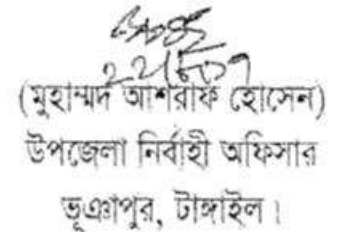 (মুহাম্মদ আশরাফ হোসেন)
উপজেলা নির্বাহী অফিসার
ভূঞাপুর, টাঙ্গাইল।